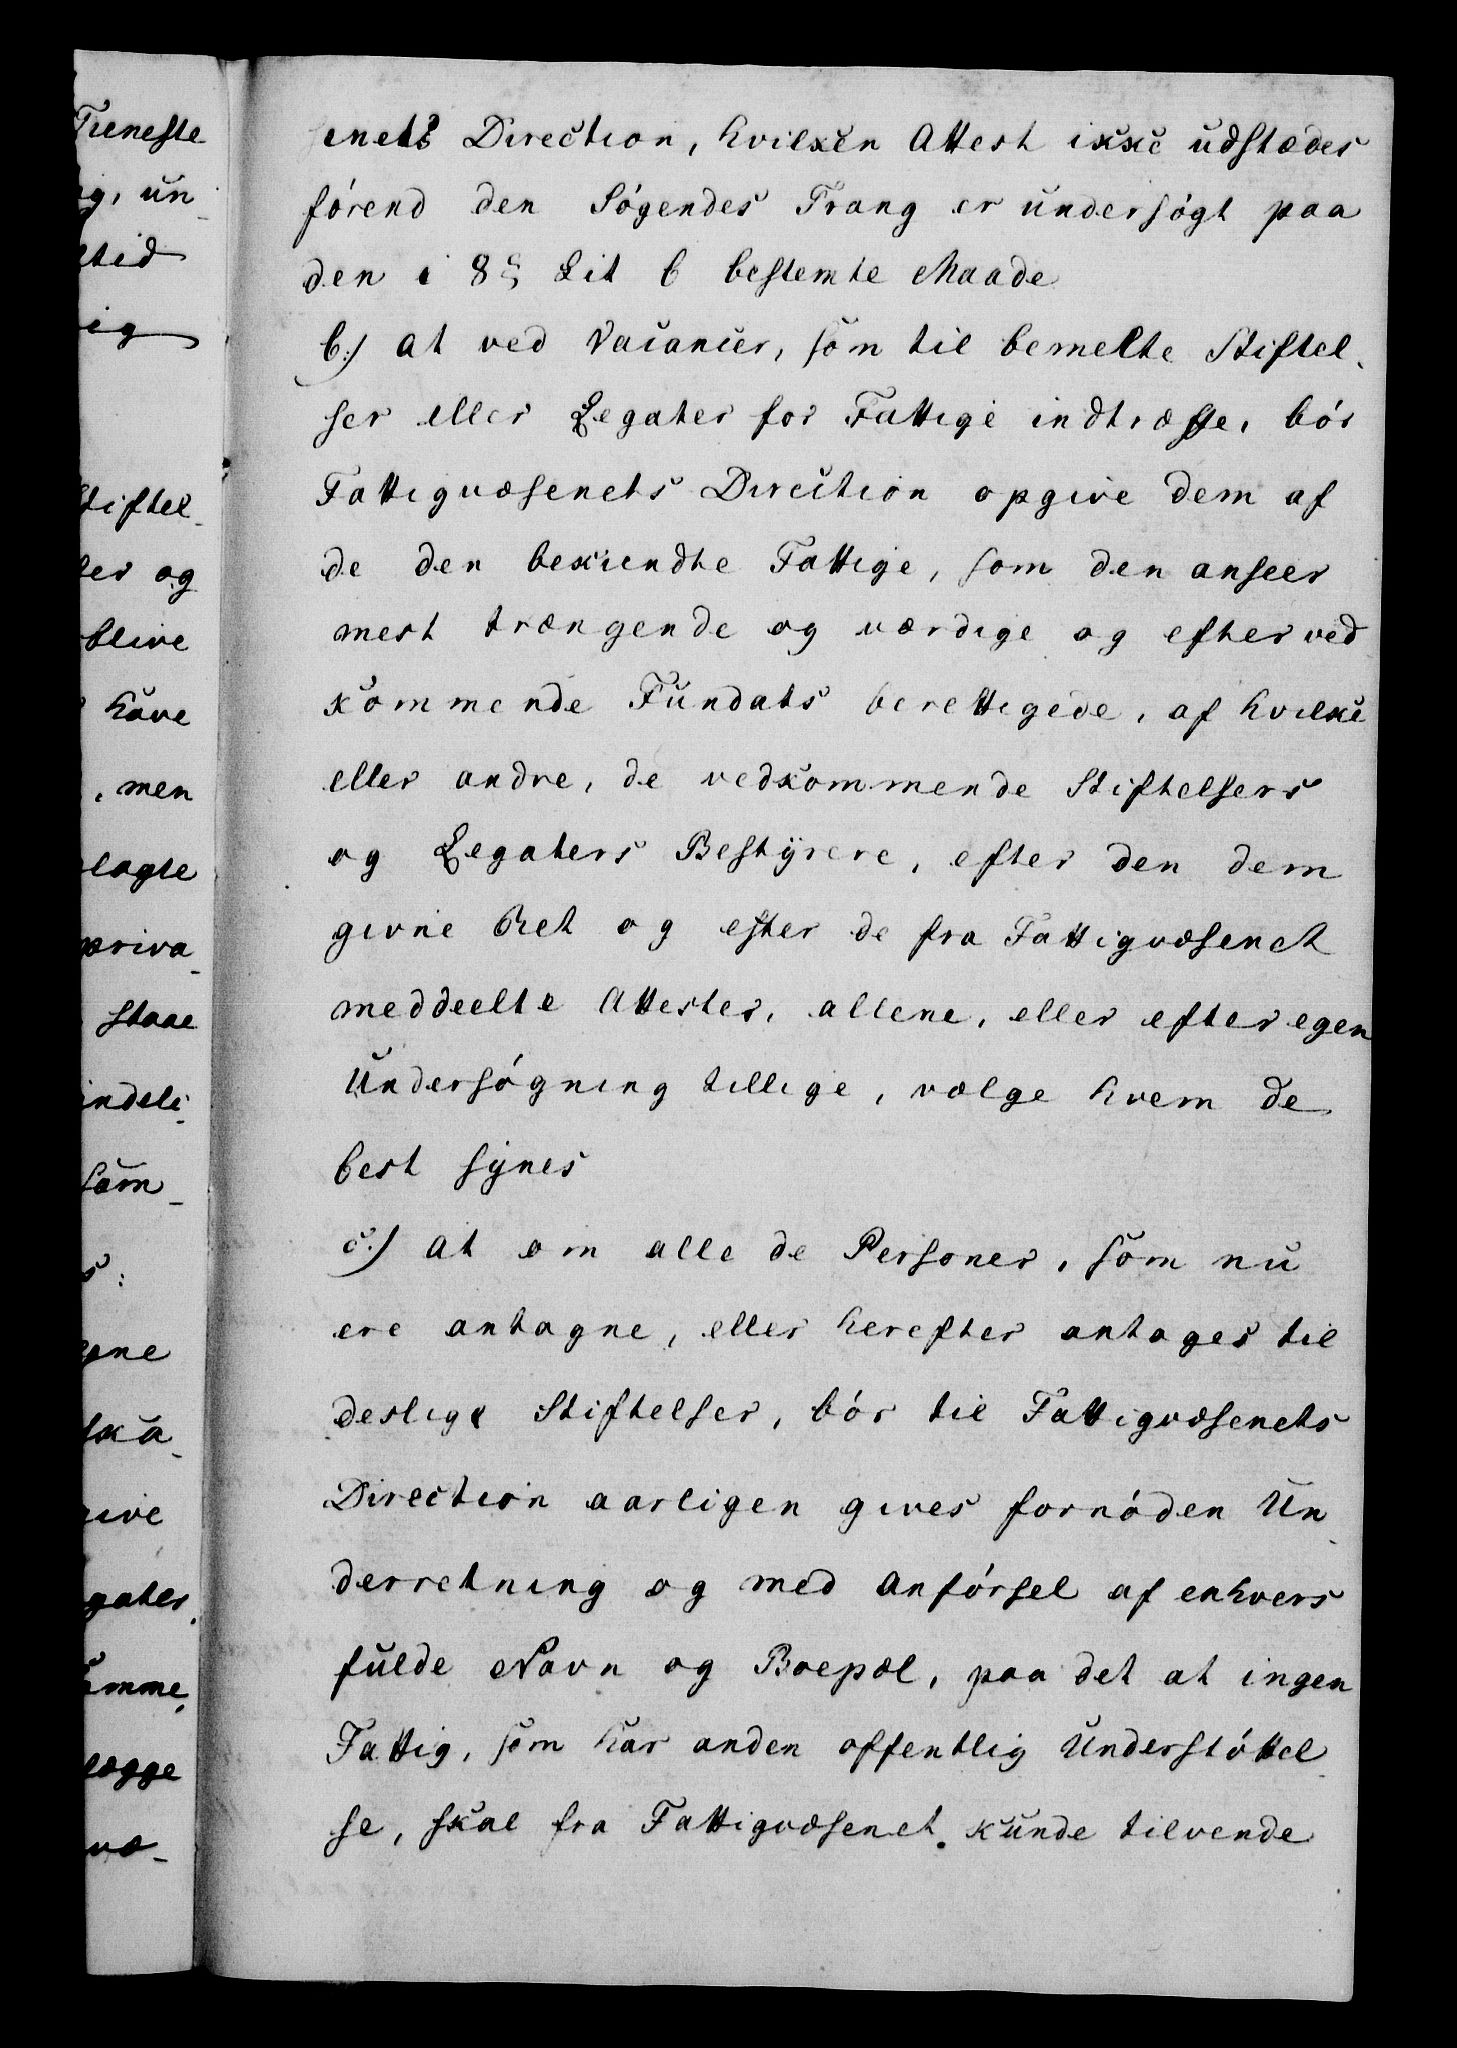 Tieneste
g, un-
ltid
ig
Stiftel-
ler og
blive
have
, men
lagte
priva-
staae
indeli-
Sam-
s:
gne
ska-
give
gater,
umme,
lægge
væ-
senets Direction, hvilken Attest ikke udstædes
förend den Sögendes Trang er undersögt paa
den i 8 § Lit b bestemte Maade
b.) at ved Vacancer, som til bemelte Stiftel-
ser eller Legater for Fattige indtræffe, bör
Fattigvæsenets Direction opgive dem af
de den bekiendte Fattige, som den anseer
mest trængende og værdige og efter ved
kommende Fundats berettigede, af hvilke
eller andre, de vedkommende Stiftelsers
og Legaters Bestÿrere, efter den dem
givne Ret og efter de fra Fattigvæsenet
meddeelte Attester, allene, eller efter egen
Undersögning tillige, vælge hvem de
best sÿnes
c.) at om alle de Personer, som nu
ere antagne, eller herefter antages til
deslige Stiftelser, bör til Fattigvæsenets
Direction aarligen gives fornöden Un-
derretning og med Anförsel af enhvers
fulde Navn og Boepæl, paa det at ingen
Fattig, som har anden offentlig Understöttel-
se, skal fra Fattigvæsenet kunde tilvende